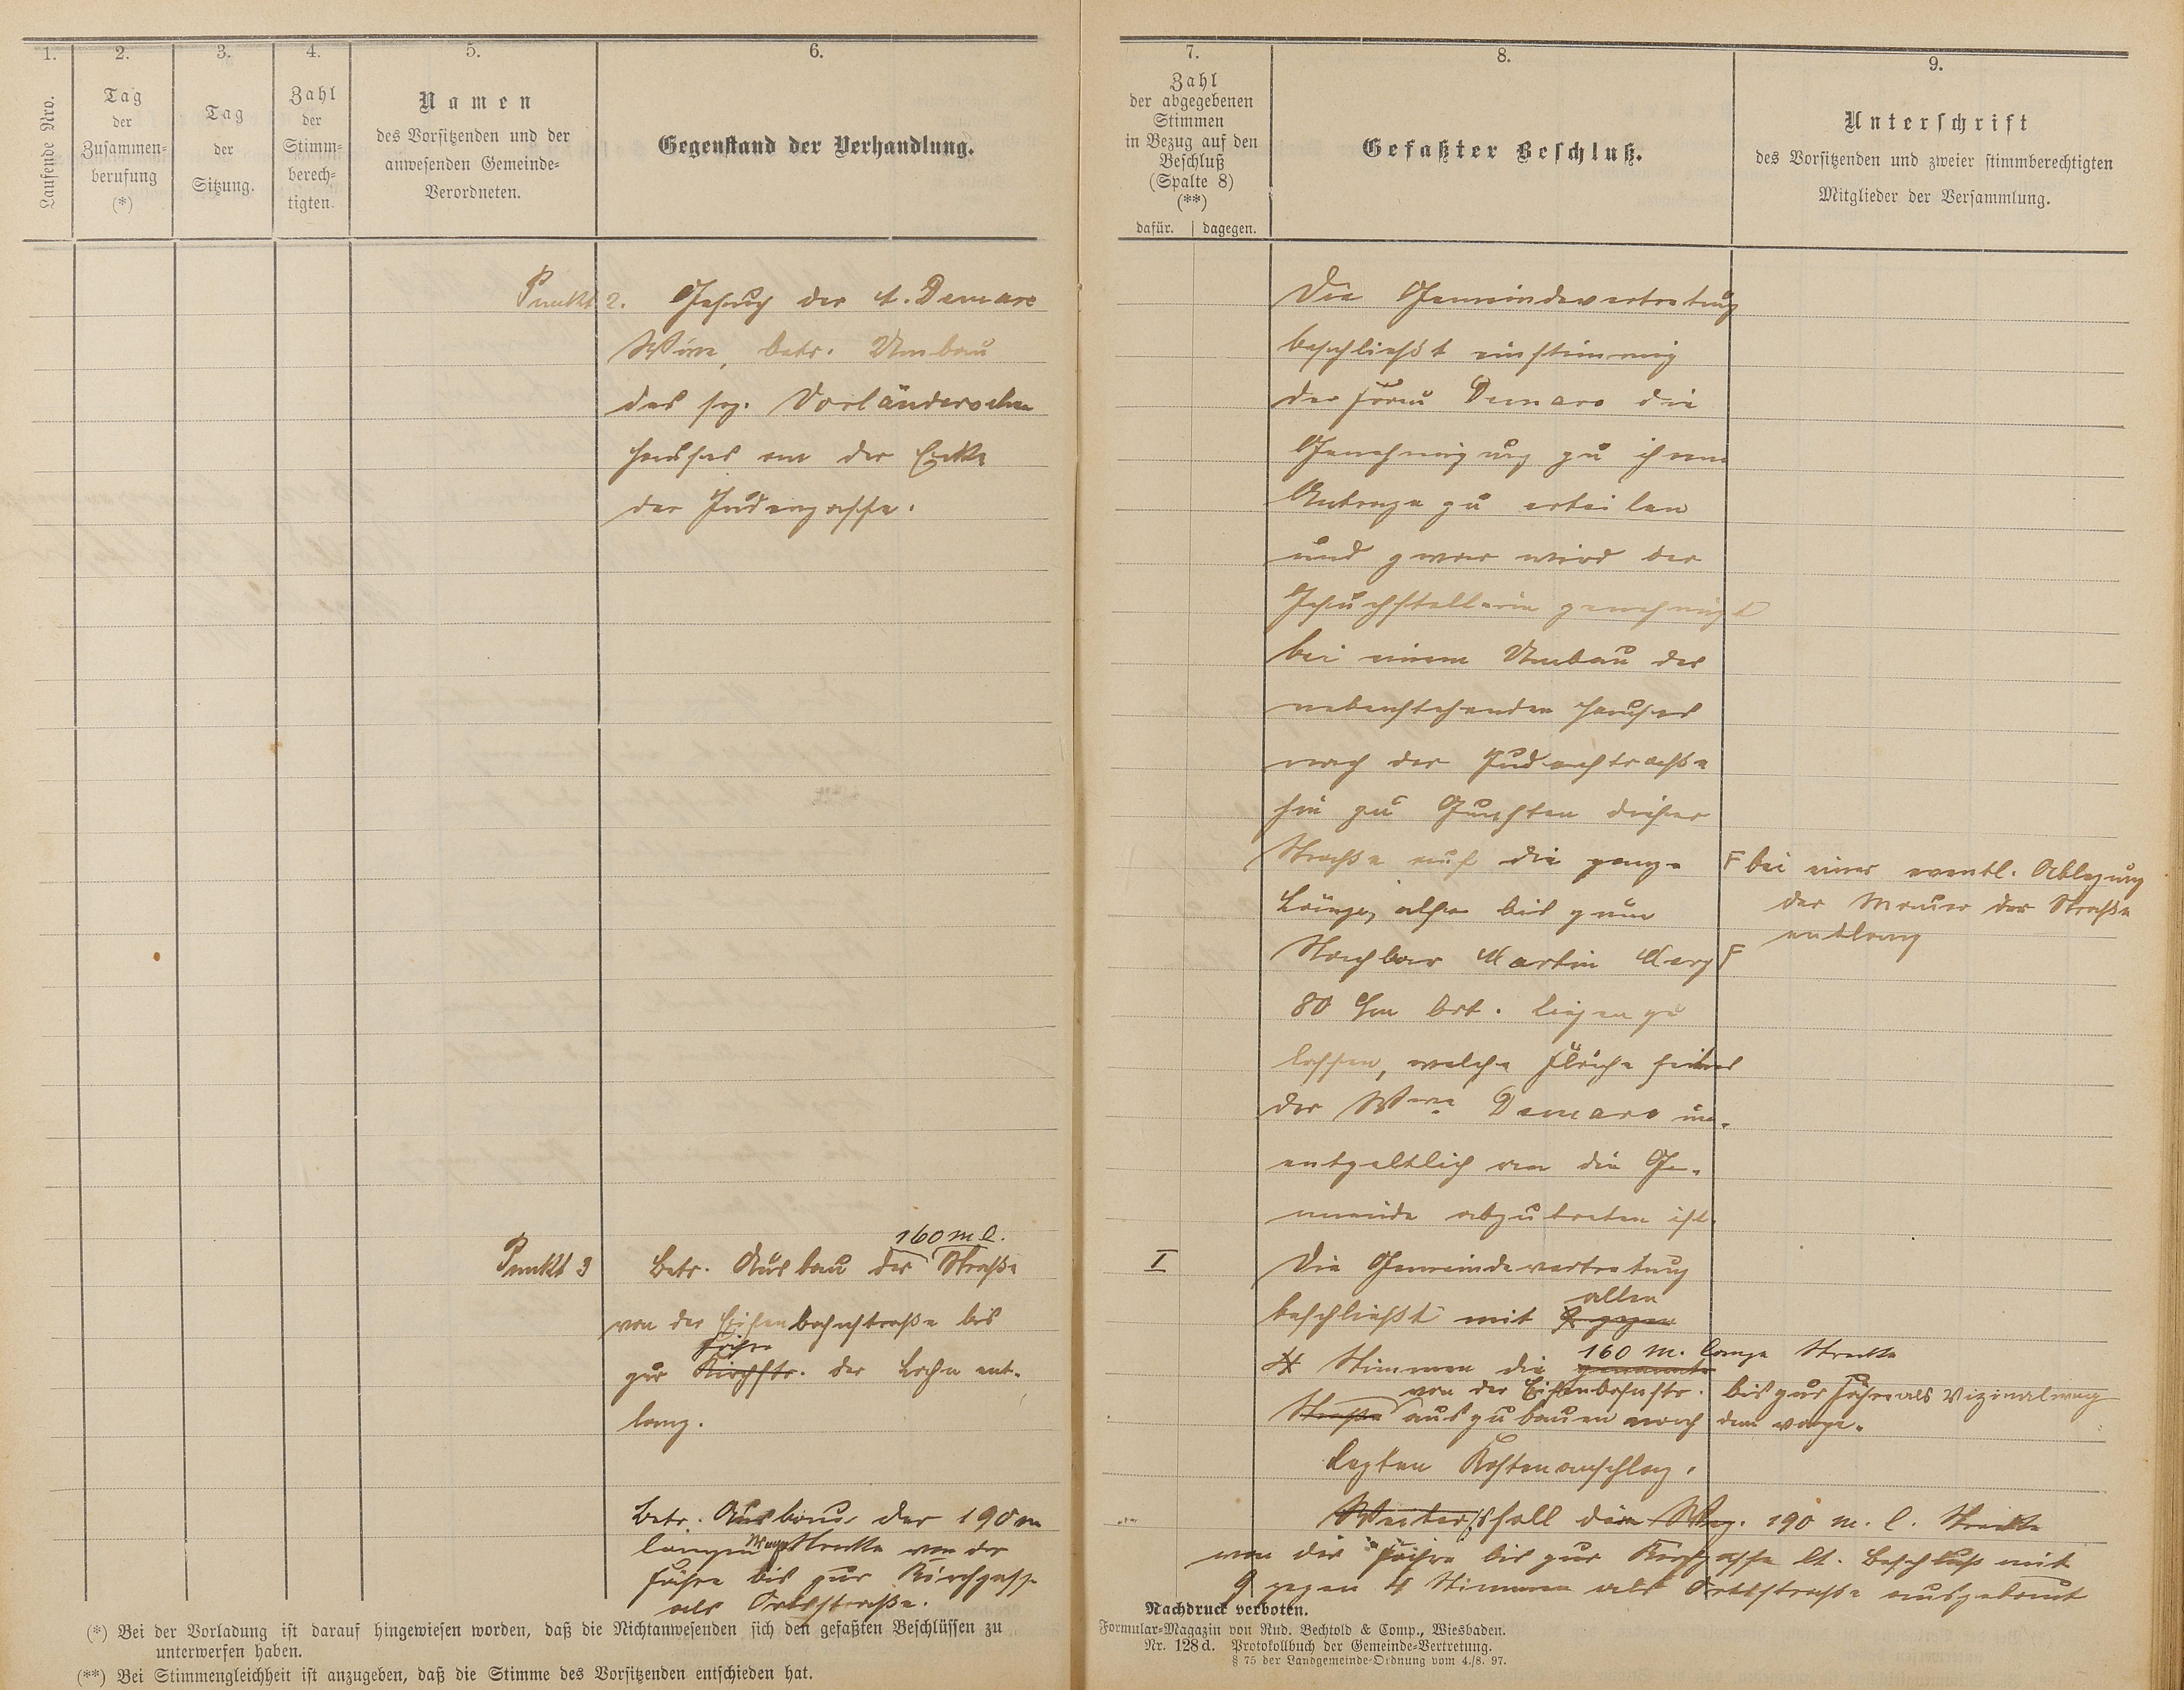 1.
Laufende Nro.
2.
Tag
der
Zusammen=
berufung
(*)
3.
Tag
der
Sitzung.
4.
Zahl
der
Stimm=
berech=
tigten.
5.
Namen
des Vorsitzenden und der
anwesenden Gemeinde=
Verordneten.
6.
Gegenstand der Verhandlung.
Punkt 2. Gesuch der A. Demare
Wwe, betr. Umbau
des sog. Vorländerschen
Hauses an der Ecke
der Judengasse.
160 m l.
Punkt 3 Betr. Ausbau der Straße
von der Eisenbahnstraße bis
Fähre
zur Kirchstr. der Lahn ent-
lang.
Betr. Ausbau der 190 m
langen Wegstrecke von der
Fähre bis zur Kirchgasse
als Ortsstraße.
(*) Bei der Vorladung ist darauf hingewiesen worden, daß die Nichtanwesenden sich den gefaßten Beschlüssen zu
unterwerfen haben.
(**) Bei Stimmengleichheit ist anzugeben, daß die Stimme des Vorsitzenden entschieden hat.
7.
Zahl
der abgegebenen
Stimmen
in Bezug auf den
Beschluß
(Spalte 8)
(**)
dafür. dagegen.
8.
Gefaßter Beschluß.
9.
Unterschrift
des Vorsitzenden und zweier stimmberechtigten
Mitglieder der Versammlung.
Die Gemeindevertretung
beschließt einstimmig
der Frau Demare die
Genehmigung zu ihrem
Antrage zu erteilen
und zwar wird der
Gesuchstellerin genehmigt
bei einem Umbau des
nebenstehenden Hauses
nach der Judenstraße
hin zu Gunsten dieser
Straße auf die ganze
Länge, also bis zum
Nachbar Martin
F bei einer eventl. Ablegung
der Mauer der Straße
entlang
80 cm brt. liegen zu
lassen, welche Fläche seitens
der Wwe Demare un-
entgeltlich an die Ge-
meinde abzutreten ist.
I
Die Gemeindevertretung
allen
beschließt mit 9 gegen
160 m. lange Strecke
4 Stimmen die genannte
von der Eisenbahnstr. bis zur Fähre als Vizinalweg
Straße auszubauen nach dem vorge-
legten Kostenanschlag.
Weiter soll die Weg. 190 m. l. Strecke
von der Fähre bis zur Kirchgasse lt. Beschluß mit
9 gegen 4 Stimmen als Ortsstraße ausgebaut
Nachdruck verboten.
Formular=Magazin von Rud. Bechtold & Comp., Wiesbaden.
Nr. 128d. Protokollbuch der Gemeinde=Vertretung.
§ 75 der Landgemeinde=Ordnung vom 4./8. 97.